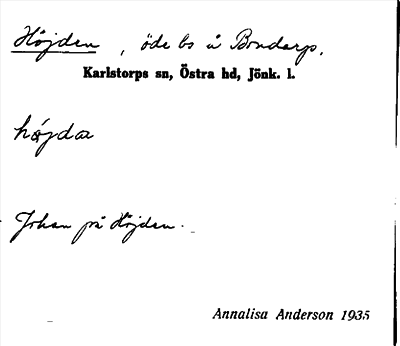 Höjden, öde bs å Bondarp.
Karlstorps sn, Östra hd, Jönk. l.
höjda
Johan på Höjden.
Annalisa Anderson 1935